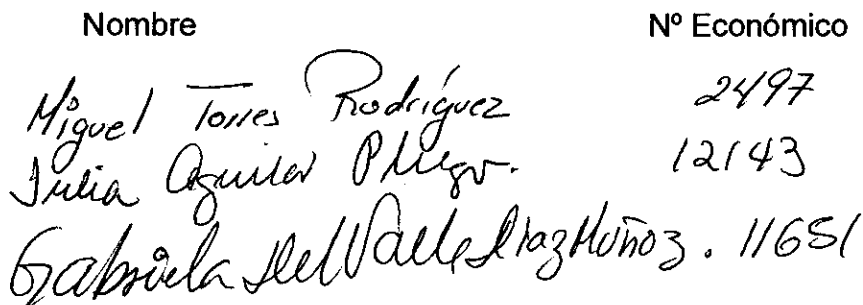 Nombre Nº Económico
Miguel Torres Rodríguez 2497
Julia Aguilar Pliego. 12143
Gabriela Del Valle Díaz Muñoz. 11651